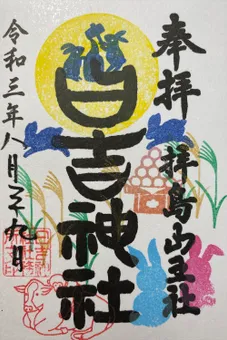 奉拝
拝島山王社
日吉神社
令和三年八月二十九日